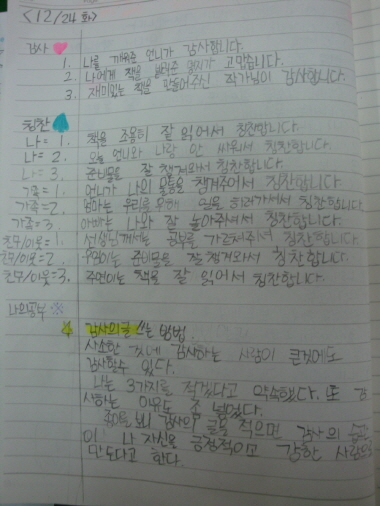 <12/24 화>
감사
1. 나를 깨워준 언니가 감사합니다.
2. 나에게 책을 빌려준 형지가 고맙습니다.
3. 재미있는 책을 만들어주신 작가님이 감사합니다.
칭찬
나= 1. 책을 조용히 잘 읽어서 칭찬합니다.
나= 2. 오늘 언니와 나랑 안 싸워서 칭찬합니다.
나= 3. 준비물을 잘 챙겨와서 칭찬합니다.
가족= 1. 언니가 나의 물통을 챙겨주어서 칭찬합니다.
가족=2. 엄마는 우리를 위해 일을 하러가서서 칭찬합니다.
가족= 3 아빠는 나와 잘 놀아주셔서 칭찬합니다.
친구/이웃= 1. 선생님께서는 공부를 가르쳐주셔서 칭찬합니다.
친구/이웃=2. 준비물을 잘 챙겨와서 칭찬합니다.
친구/이웃=3. 주연이는 책을 잘 읽어서 칭찬합니다.
나의공부
감사의글 쓰는 방법.
사소한 것에 감사하는 사람이 큰것에도
감사할수 있다.
나는 3가지를 적겠다고 약속했다. 또 감
사하는 이유도 꼭 넣겠다.
감사의 글을 적으면 감사의 습관
이 나 자신을 긍정적이고 강한 사람으로
만든다고 한다.